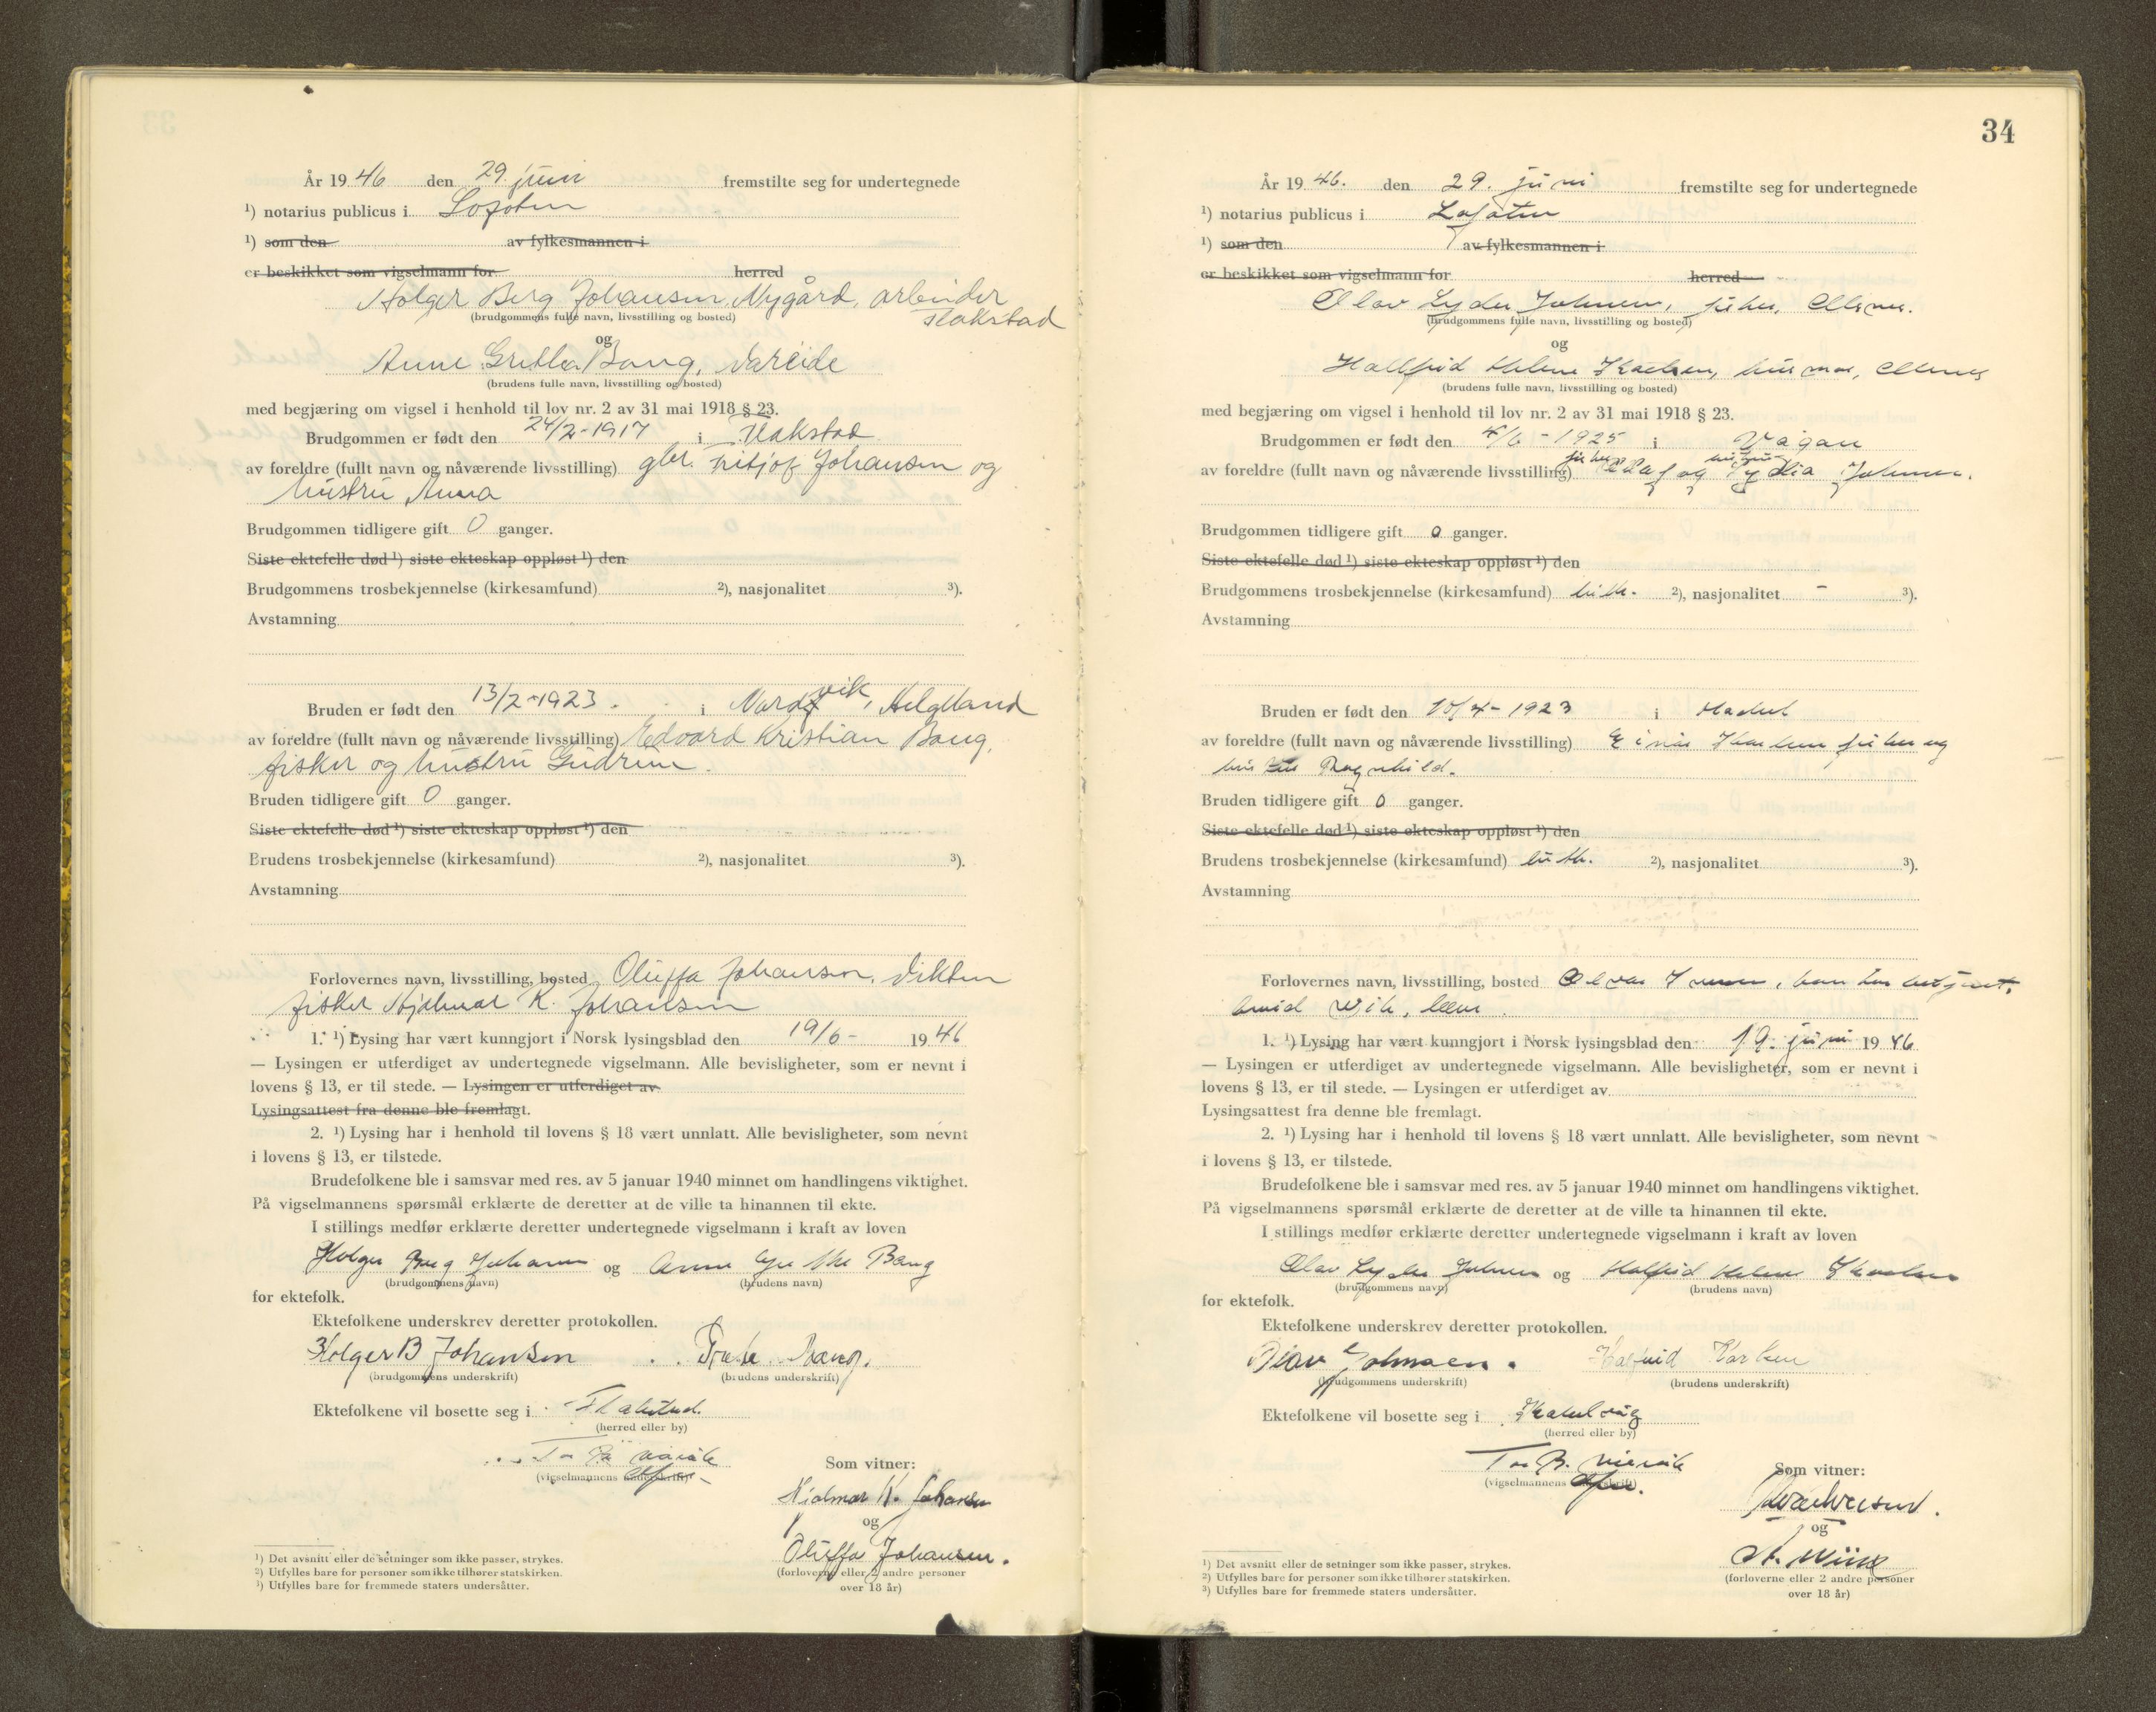 År 19 46 den 29. juni fremstilte seg for undertegnede
¹) notarius publicus i Lofoten
¹) som den av fylkesmannen i
er beskikket som vigselmann for herred
Holger Berg Johansen, Nygård, arbeider
Flakstad
(brudgommens fulle navn, livsstilling og bosted)
og
Anne Grethe Bang, Vareide
(brudens fulle navn, livsstilling og bosted)
med begjæring om vigsel i henhold til lov nr. 2 av 31 mai 1918 § 23.
Brudgommen er født den 24/2-1917 i Flakstad
av foreldre (fullt navn og nåværende livsstilling) gbr. Fritjof Johansen og
hustru Anna
Brudgommen tidligere gift 0 ganger.
Siste ektefelle død ¹) siste ekteskap oppløst ¹) den
Brudgommens trosbekjennelse (kirkesamfund) ²), nasjonalitet ³).
Avstamning
Bruden er født den 13/2-1923. i Nordvik, Helgeland
av foreldre (fullt navn og nåværende livsstilling) Edvard Kristian Bang,
fisker og hustru Gudrun.
Bruden tidligere gift 0 ganger.
Siste ektefelle død ¹) siste ekteskap oppløst ¹) den
Brudens trosbekjennelse (kirkesamfund) ²), nasjonalitet ³).
Avstamning
Forlovernes navn, livsstilling, bosted Oluffa Johansen, Vikten
fisker Hjalmar K. Johansen
1. ¹) Lysing har vært kunngjort i Norsk lysingsblad den 19/6- 19 46
— Lysingen er utferdiget av undertegnede vigselmann. Alle bevisligheter, som er nevnt i
lovens § 13, er til stede. — Lysingen er utferdiget av
Lysingsattest fra denne ble fremlagt.
2. ¹) Lysing har i henhold til lovens § 18 vært unnlatt. Alle bevisligheter, som nevnt
i lovens § 13, er tilstede.
Brudefolkene ble i samsvar med res. av 5 januar 1940 minnet om handlingens viktighet.
På vigselmannens spørsmål erklærte de deretter at de ville ta hinannen til ekte.
I stillings medfør erklærte deretter undertegnede vigselmann i kraft av loven
Holger Berg Johansen og Anne Grethe Bang
(brudgommens navn) (brudens navn)
for ektefolk.
Ektefolkene underskrev deretter protokollen.
Holger B Johansen Grete Bang.
(brudgommens underskrift) (brudens underskrift)
Ektefolkene vil bosette seg i Flakstad.
(herred eller by)
(vigselmannens underskrift)
Som vitner:
Hjalmar K. Johansen
og
Oluffa Johansen.
(forloverne eller 2 andre personer
over 18 år)
¹) Det avsnitt eller de setninger som ikke passer, strykes.
²) Utfylles bare for personer som ikke tilhører statskirken.
³) Utfylles bare for fremmede staters undersåtter.
34
År 19 46. den 29. juni fremstilte seg for undertegnede
¹) notarius publicus i Lofoten
¹) som den av fylkesmannen i
er beskikket som vigselmann for herred
Olav Lyder Johnsen, fisker,
(brudgommens fulle navn, livsstilling og bosted)
og
Hallfrid Helene Karlsen,
(brudens fulle navn, livsstilling og bosted)
med begjæring om vigsel i henhold til lov nr. 2 av 31 mai 1918 § 23.
Brudgommen er født den 4/6-1925 i Vågan
av foreldre (fullt navn og nåværende livsstilling) fisker Olaf og hustru Lydia Johnsen.
Brudgommen tidligere gift 0 ganger.
Siste ektefelle død ¹) siste ekteskap oppløst ¹) den
Brudgommens trosbekjennelse (kirkesamfund) luth. ²), nasjonalitet - ³).
Avstamning
Bruden er født den 10/4-1923 i Hadsel
av foreldre (fullt navn og nåværende livsstilling) Einar Karlsen fisker og
hustru Ragnhild.
Bruden tidligere gift 0 ganger.
Siste ektefelle død ¹) siste ekteskap oppløst ¹) den
Brudens trosbekjennelse (kirkesamfund) luth. ²), nasjonalitet ³).
Avstamning
Forlovernes navn, livsstilling, bosted
1. ¹) Lysing har vært kunngjort i Norsk lysingsblad den 19. juni 19 46
— Lysingen er utferdiget av undertegnede vigselmann. Alle bevisligheter, som er nevnt i
lovens § 13, er til stede. — Lysingen er utferdiget av
Lysingsattest fra denne ble fremlagt.
2. ¹) Lysing har i henhold til lovens § 18 vært unnlatt. Alle bevisligheter, som nevnt
i lovens § 13, er tilstede.
Brudefolkene ble i samsvar med res. av 5 januar 1940 minnet om handlingens viktighet.
På vigselmannens spørsmål erklærte de deretter at de ville ta hinannen til ekte.
I stillings medfør erklærte deretter undertegnede vigselmann i kraft av loven
Olav Lyder Johnsen og Halfrid Helene Karlsen
(brudgommens navn) (brudens navn)
for ektefolk.
Ektefolkene underskrev deretter protokollen.
Olav Johnsen. Halfrid Karlsen
(brudgommens underskrift) (brudens underskrift)
Ektefolkene vil bosette seg i
(herred eller by)
(vigselmannens underskrift)
Som vitner:
og
(forloverne eller 2 andre personer
over 18 år)
¹) Det avsnitt eller de setninger som ikke passer, strykes.
²) Utfylles bare for personer som ikke tilhører statskirken.
³) Utfylles bare for fremmede staters undersåtter.